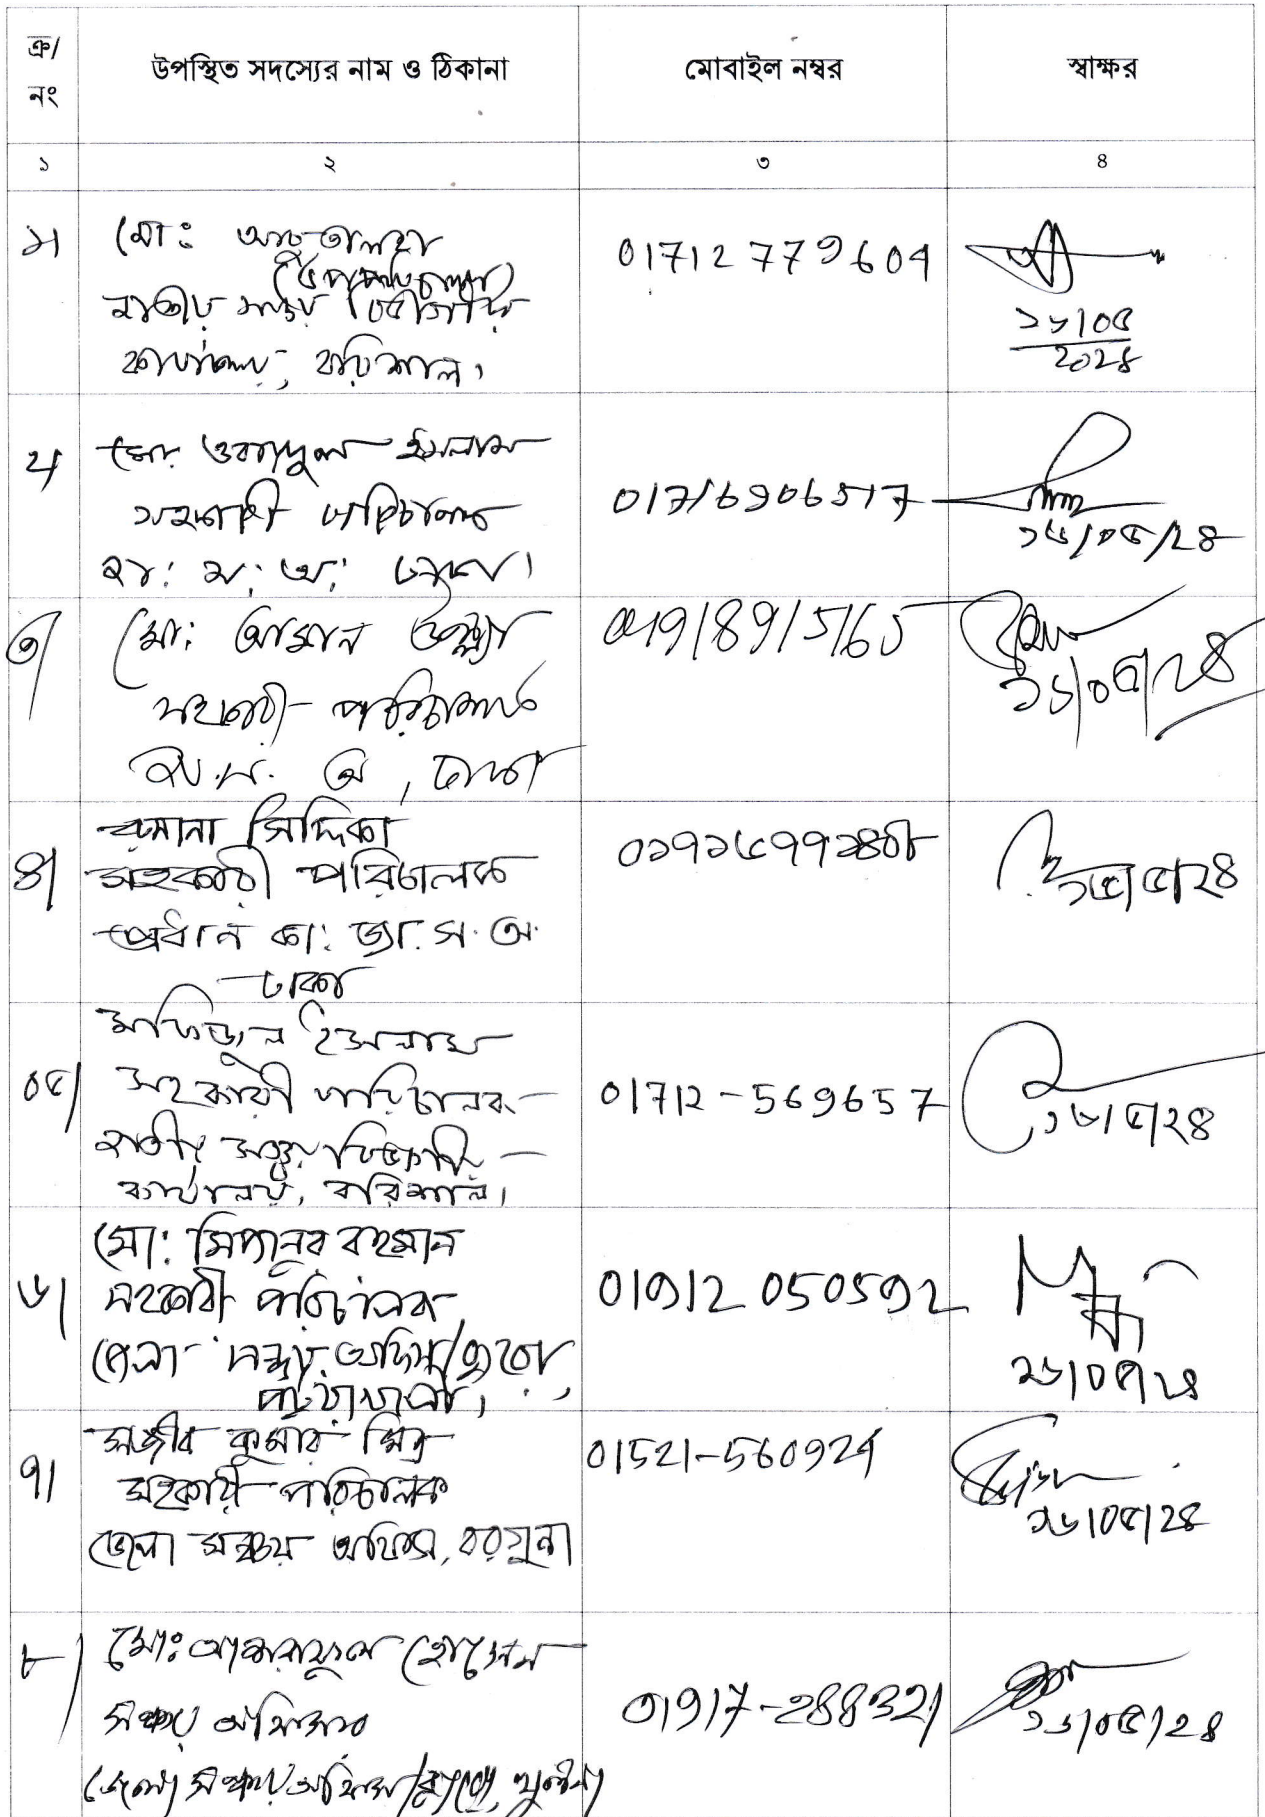 ক্র/
নং
উপস্থিত সদস্যের নাম ও ঠিকানা
মোবাইল নম্বর
স্বাক্ষর
১
২
৩
৪
১।
মোঃ আবু তালহা
(উপপরিচালক)
বিভাগীয়
কার্যালয়, বরিশাল।
01712 779604
১৬/০৫
২০২৪
২।
মো: ওবায়দুল ইসলাম
সহকারী পরিচালক
ঢাকা।
01716906517
১৬/০৫/২৪
৩।
মো: আমান উল্ল্যা
সহকারী পরিচালক
ঢাকা
১৬/০৫/২৪
৪।
রুমানা সিদ্দিকা
সহকারী পরিচালক
প্রধান কা: জা. স. অ.
ঢাকা
৫/২৪
০৫।
মফিজুল ইসলাম
সহকারী পরিচালক
সঞ্চয় বিভাগীয়
কার্যালয়, বরিশাল।
01712-569657
১৬/৫/২৪
৬।
মো: মিজানুর রহমান
সহকারী পরিচালক
জেলা সঞ্চয় অফিস/ব্যুরো,
পটুয়াখালী।
01912 050592
১৬/০৫/২৪
৭।
সঞ্জীব কুমার মিত্র
সহকারী পরিচালক
জেলা সঞ্চয় অফিস, বরগুনা
01521-560924
১৬/০৫/২৪
৮।
মোঃ হোসেন
সঞ্চয় অফিসার
জেলা সঞ্চয় অফিস/ব্যুরো, খুলনা
01917-288321
১৬/০৫/২৪